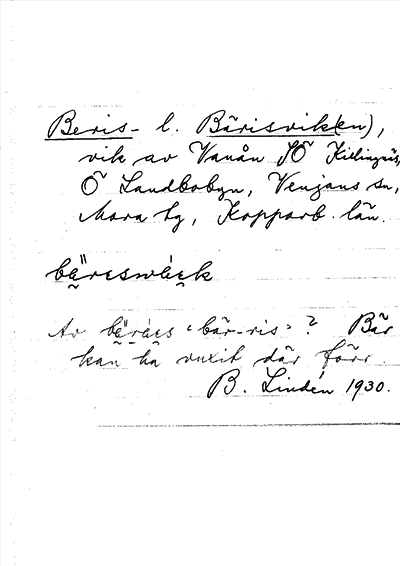 Beris- l. Bärisvik(en),
vik av Vanån SÖ
Ö Landbobyn, Venjans sn,
Mora tg, Kopparb. län.
bäreswik
Av bäres "bär-ris"? Bär
kan ha vuxit där förr.
B. Lindén 1930.